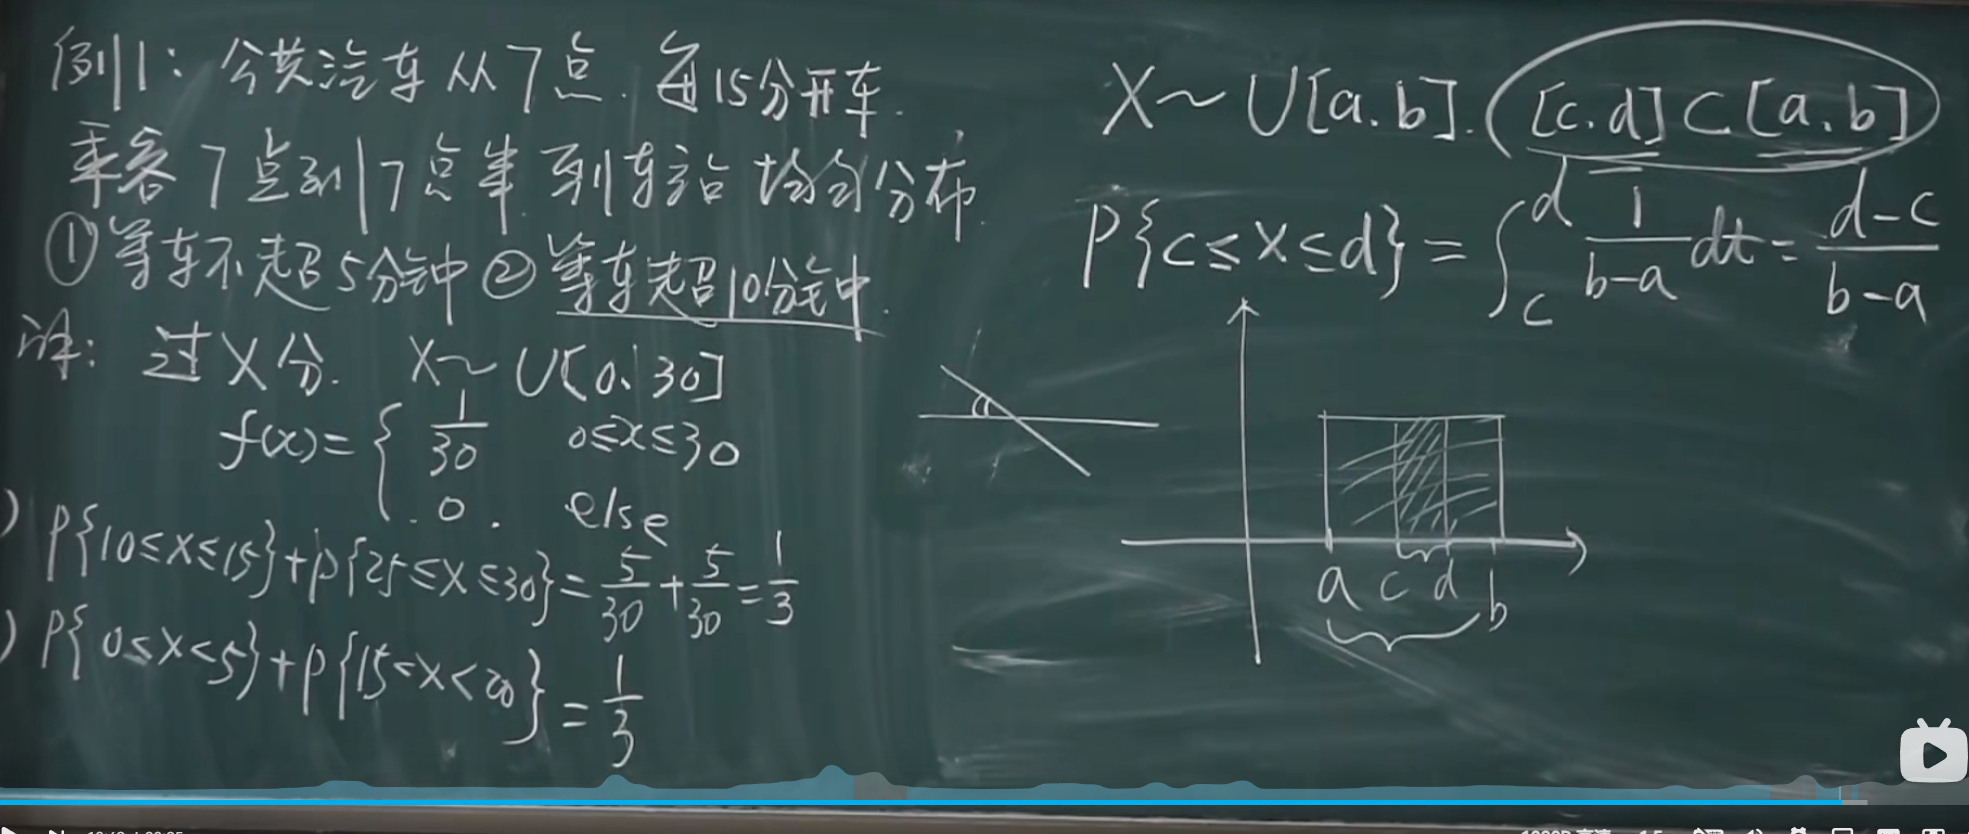 例1：公共汽车从7点.每15分开车.
乘客7点到7点半到车站均匀分布.
①等车不超5分钟②等车超10分钟.
解：过X分. X~U[0,30]
f(x)={ 1/30 0≤x≤30
0. else
)P{10≤X≤15}+P{25≤X≤30}=5/30+5/30=1/3
)P{0≤X<5}+P{15<X<20}=1/3
X~U[a.b].([c.d]⊂[a.b])
P{c≤X≤d}=∫_c^d 1/(b-a) dt=(d-c)/(b-a)
a c d b